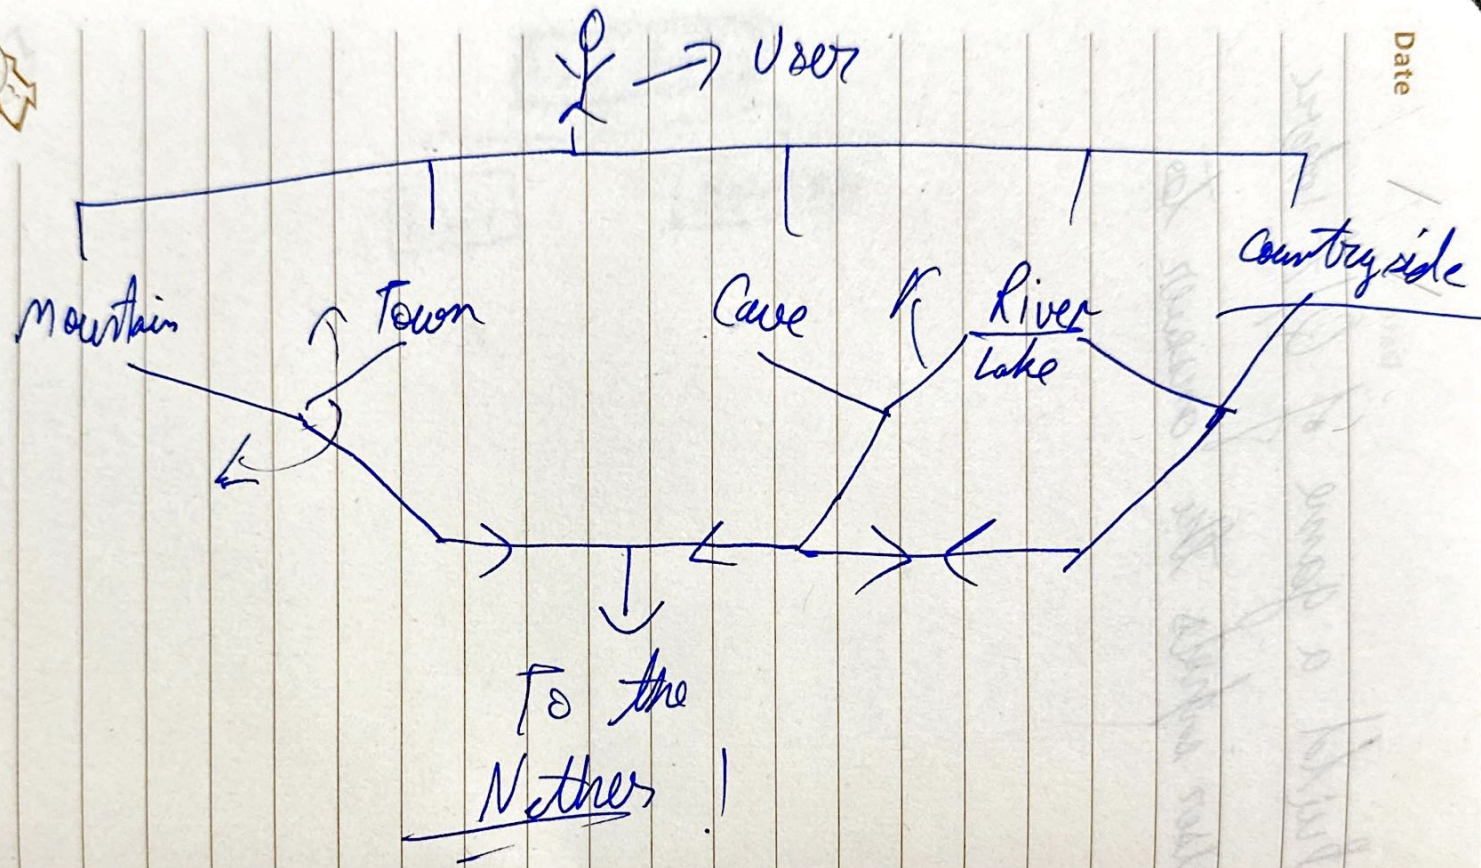 Date
User
Mountain
Town
Cave
River
Lake
Countryside
To the
Nether !